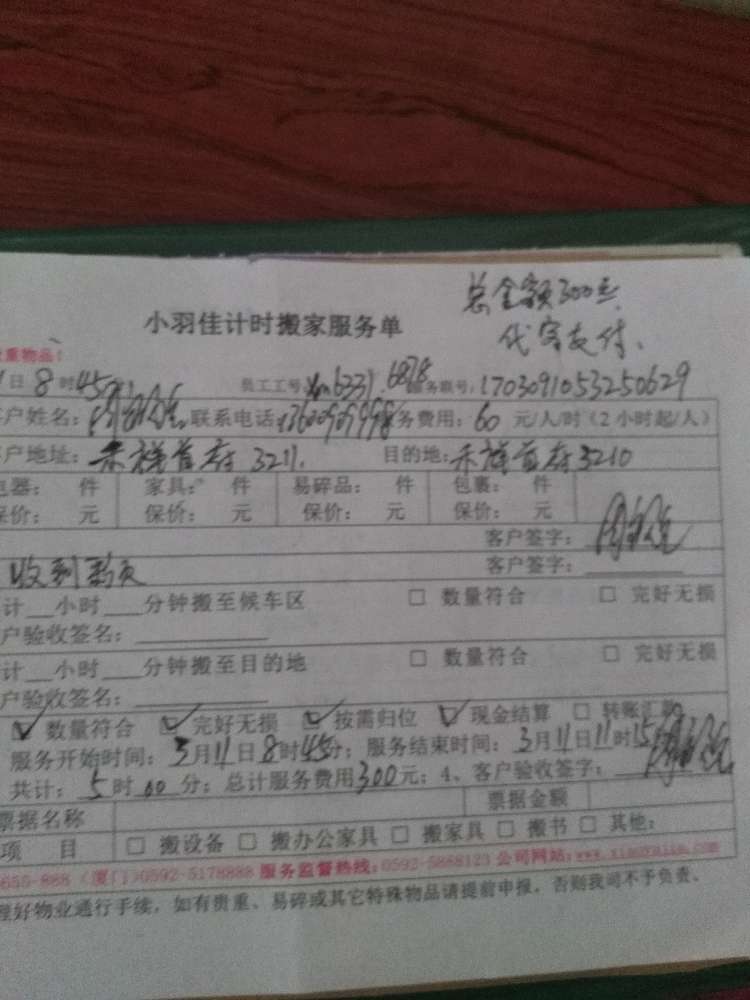 总金额300元.
代客支付.
小羽佳计时搬家服务单
重物品!
日8时45 员工工号: 6331 6878 服务联号: 1703091053250629
户姓名: 联系电话: 务费用: 60 元/人/时(2小时起/人)
户地址: 禾祥首府3211. 目的地: 禾祥首府3210
电器: 件 家具: 件 易碎品: 件 包裹: 件
保价: 元 保价: 元 保价: 元 保价: 元
客户签字:
收到 客户签字:
计__小时___分钟搬至候车区 □ 数量符合 □ 完好无损
户验收签名:
计__小时___分钟搬至目的地 □ 数量符合 □ 完好无损
户验收签名:
☑ 数量符合 ☑ 完好无损 ☑ 按需归位 ☑ 现金结算 □ 转账汇款
服务开始时间: 3月11日8时45分; 服务结束时间: 3月11日11时15
共计: 5时00分; 总计服务费用300元; 4、客户验收签字:
票据名称 票据金额
项 目 □ 搬设备 □ 搬办公家具 □ 搬家具 □ 搬书 □ 其他:
655-888 (厦门)0592-5178888 服务监督热线:0592-5888123 公司网站:
理好物业通行手续, 如有贵重、易碎或其它特殊物品请提前申报, 否则我司不予负责.